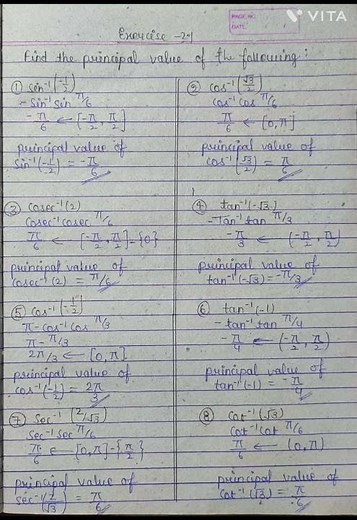 PAGE NO.
DATE:
VITA
Exercise - 2.1
Find the principal value of the following:
① sin⁻¹(-1/2)
- sin⁻¹ sin π/6
-π/6 ← [-π/2, π/2]
principal value of
sin⁻¹(-1/2) = -π/6
② cos⁻¹(√3/2)
cos⁻¹ cos π/6
π/6 ← [0, π]
principal value of
cos⁻¹(√3/2) = π/6
③ cosec⁻¹(2)
cosec⁻¹ cosec π/6
π/6 ← [-π/2, π/2] - {0}
principal value of
cosec⁻¹(2) = π/6
④ tan⁻¹(-√3)
- Tan⁻¹ tan π/3
-π/3 ← (-π/2, π/2)
principal value of
tan⁻¹(-√3) = -π/3
⑤ cos⁻¹(-1/2)
π - cos⁻¹ cos π/3
π - π/3
2π/3 ← [0, π]
principal value of
cos⁻¹(-1/2) = 2π/3
⑥ tan⁻¹(-1)
- tan⁻¹ tan π/4
-π/4 ← (-π/2, π/2)
principal value of
tan⁻¹(-1) = -π/4
⑦ Sec⁻¹(2/√3)
sec⁻¹ sec π/6
π/6 ← [0, π] - {π/2}
principal value of
sec⁻¹(2/√3) = π/6
⑧ Cot⁻¹(√3)
Cot⁻¹ cot π/6
π/6 ← (0, π)
principal value of
Cot⁻¹(√3) = π/6